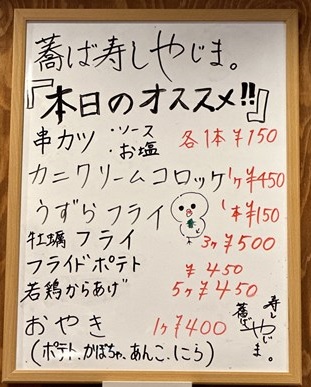 蕎ば寿しやじま。
『本日のオススメ!!』
串カツ ・ソース ・お塩 各1本¥150
カニクリームコロッケ 1ヶ¥450
うずらフライ 1本¥150
牡蠣フライ 3ヶ¥500
フライドポテト ¥450
若鶏からあげ 5ヶ¥450
おやき 1ヶ¥400
(ポテト、かぼちゃ、あんこ、にら)
寿し
蕎ば
やじま。